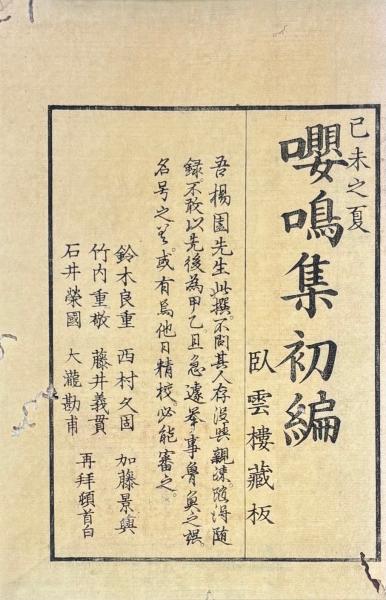 己未之夏
嚶鳴集初編
臥雲樓藏板
吾楊園先生此撰。不問其人存沒與親疎。隨得隨
録。不敢以先後為甲乙且急遽举事魯魚之誤。
名号之差。或有焉他日精校必能審之。
鈴木良重　西村久固　加藤景與
竹内重敬　藤井義貫
石井榮國　大瀧勘甫　再拜頓首白